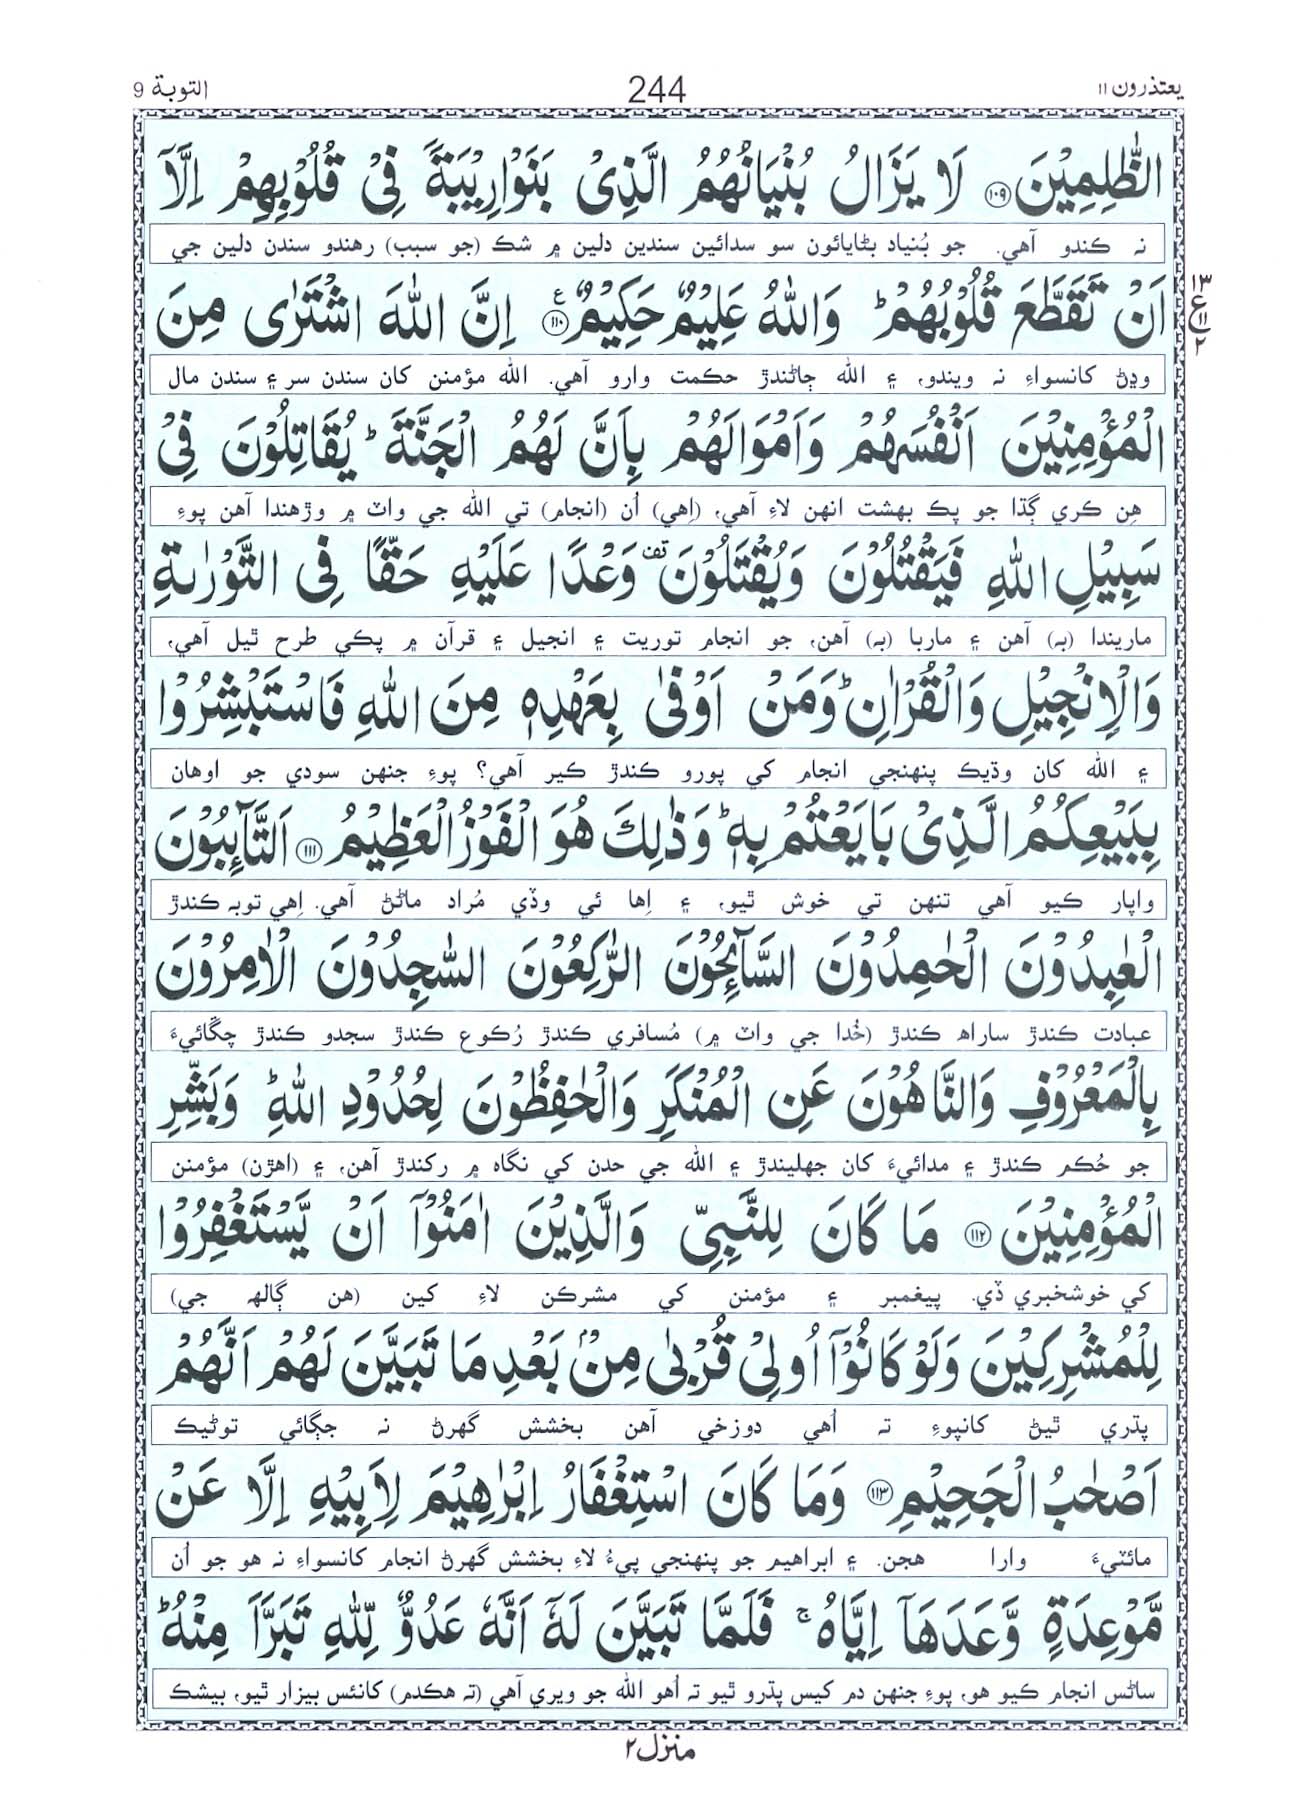 يعتذرون ١١ 244 التوبة 9
الظّٰلِمِيْنَ ﴿١٠٩﴾ لَا يَزَالُ بُنْيَانُهُمُ الَّذِىْ بَنَوْا رِيْبَةً فِىْ قُلُوْبِهِمْ اِلَّاۤ
نہ ڪندو آهي. جو بُنياد بڻايائون سو سدائين سندين دلين ۾ شڪ (جو سبب) رهندو سندن دلين جي
اَنْ تَقَطَّعَ قُلُوْبُهُمْ ؕ وَاللّٰهُ عَلِيْمٌ حَكِيْمٌ ﴿١١٠﴾ ع اِنَّ اللّٰهَ اشْتَرٰى مِنَ
١٣ ع ١١ ٢
وڍڻ کانسواءِ نہ ويندو، ۽ الله ڄاڻندڙ حڪمت وارو آهي. الله مؤمنن کان سندن سر ۽ سندن مال
الْمُؤْمِنِيْنَ اَنْفُسَهُمْ وَاَمْوَالَهُمْ بِاَنَّ لَهُمُ الْجَنَّةَ ؕ يُقَاتِلُوْنَ فِىْ
هِن ڪري ڳڌا جو پڪ بهشت انهن لاءِ آهي، (اِهي) اُن (انجام) تي الله جي واٽ ۾ وڙهندا آهن پوءِ
سَبِيْلِ اللّٰهِ فَيَقْتُلُوْنَ وَيُقْتَلُوْنَ قف وَعْدًا عَلَيْهِ حَقًّا فِى التَّوْرٰىةِ
ماريندا (بہ) آهن ۽ ماربا (بہ) آهن، جو انجام توريت ۽ انجيل ۽ قرآن ۾ پڪي طرح ٿيل آهي،
وَالْاِنْجِيْلِ وَالْقُرْاٰنِ ؕ وَمَنْ اَوْفٰى بِعَهْدِهٖ مِنَ اللّٰهِ فَاسْتَبْشِرُوْا
۽ الله کان وڌيڪ پنهنجي انجام کي پورو ڪندڙ ڪير آهي؟ پوءِ جنهن سودي جو اوهان
بِبَيْعِكُمُ الَّذِىْ بَايَعْتُمْ بِهٖ ؕ وَذٰلِكَ هُوَ الْفَوْزُ الْعَظِيْمُ ﴿١١١﴾ اَلتَّآئِبُوْنَ
واپار ڪيو آهي تنهن تي خوش ٿيو، ۽ اِها ئي وڏي مُراد ماڻڻ آهي. اِهي توبہ ڪندڙ
الْعٰبِدُوْنَ الْحٰمِدُوْنَ السَّآئِحُوْنَ الرّٰكِعُوْنَ السّٰجِدُوْنَ الْاٰمِرُوْنَ
عبادت ڪندڙ ساراھ ڪندڙ (خُدا جي واٽ ۾) مُسافري ڪندڙ رُڪوع ڪندڙ سجدو ڪندڙ چڱائيءَ
بِالْمَعْرُوْفِ وَالنَّاهُوْنَ عَنِ الْمُنْكَرِ وَالْحٰفِظُوْنَ لِحُدُوْدِ اللّٰهِ ؕ وَبَشِّرِ
جو حُڪم ڪندڙ ۽ مدائيءَ کان جهليندڙ ۽ الله جي حدن کي نگاه ۾ رکندڙ آهن، ۽ (اهڙن) مؤمنن
الْمُؤْمِنِيْنَ ﴿١١٢﴾ مَا كَانَ لِلنَّبِىِّ وَالَّذِيْنَ اٰمَنُوْۤا اَنْ يَّسْتَغْفِرُوْا
کي خوشخبري ڏي. پيغمبر ۽ مؤمنن کي مشرڪن لاءِ کين (هن ڳالھہ جي)
لِلْمُشْرِكِيْنَ وَلَوْ كَانُوْۤا اُولِىْ قُرْبٰى مِنْۢ بَعْدِ مَا تَبَيَّنَ لَهُمْ اَنَّهُمْ
پڌري ٿيڻ کانپوءِ تہ اُهي دوزخي آهن بخشش گهرڻ نہ جڳائي توڻيڪ
اَصْحٰبُ الْجَحِيْمِ ﴿١١٣﴾ وَمَا كَانَ اسْتِغْفَارُ اِبْرٰهِيْمَ لِاَبِيْهِ اِلَّا عَنْ
مائٽيءَ وارا هجن. ۽ ابراهيم جو پنهنجي پيءُ لاءِ بخشش گهرڻ انجام کانسواءِ نہ هو جو اُن
مَّوْعِدَةٍ وَّعَدَهَاۤ اِيَّاهُ ۚ فَلَمَّا تَبَيَّنَ لَهٗۤ اَنَّهٗ عَدُوٌّ لِّلّٰهِ تَبَرَّاَ مِنْهُ ؕ
ساڻس انجام ڪيو هو، پوءِ جنهن دم کيس پڌرو ٿيو تہ اُهو الله جو ويري آهي (تہ هڪدم) کانئس بيزار ٿيو، بيشڪ
منزل ٢